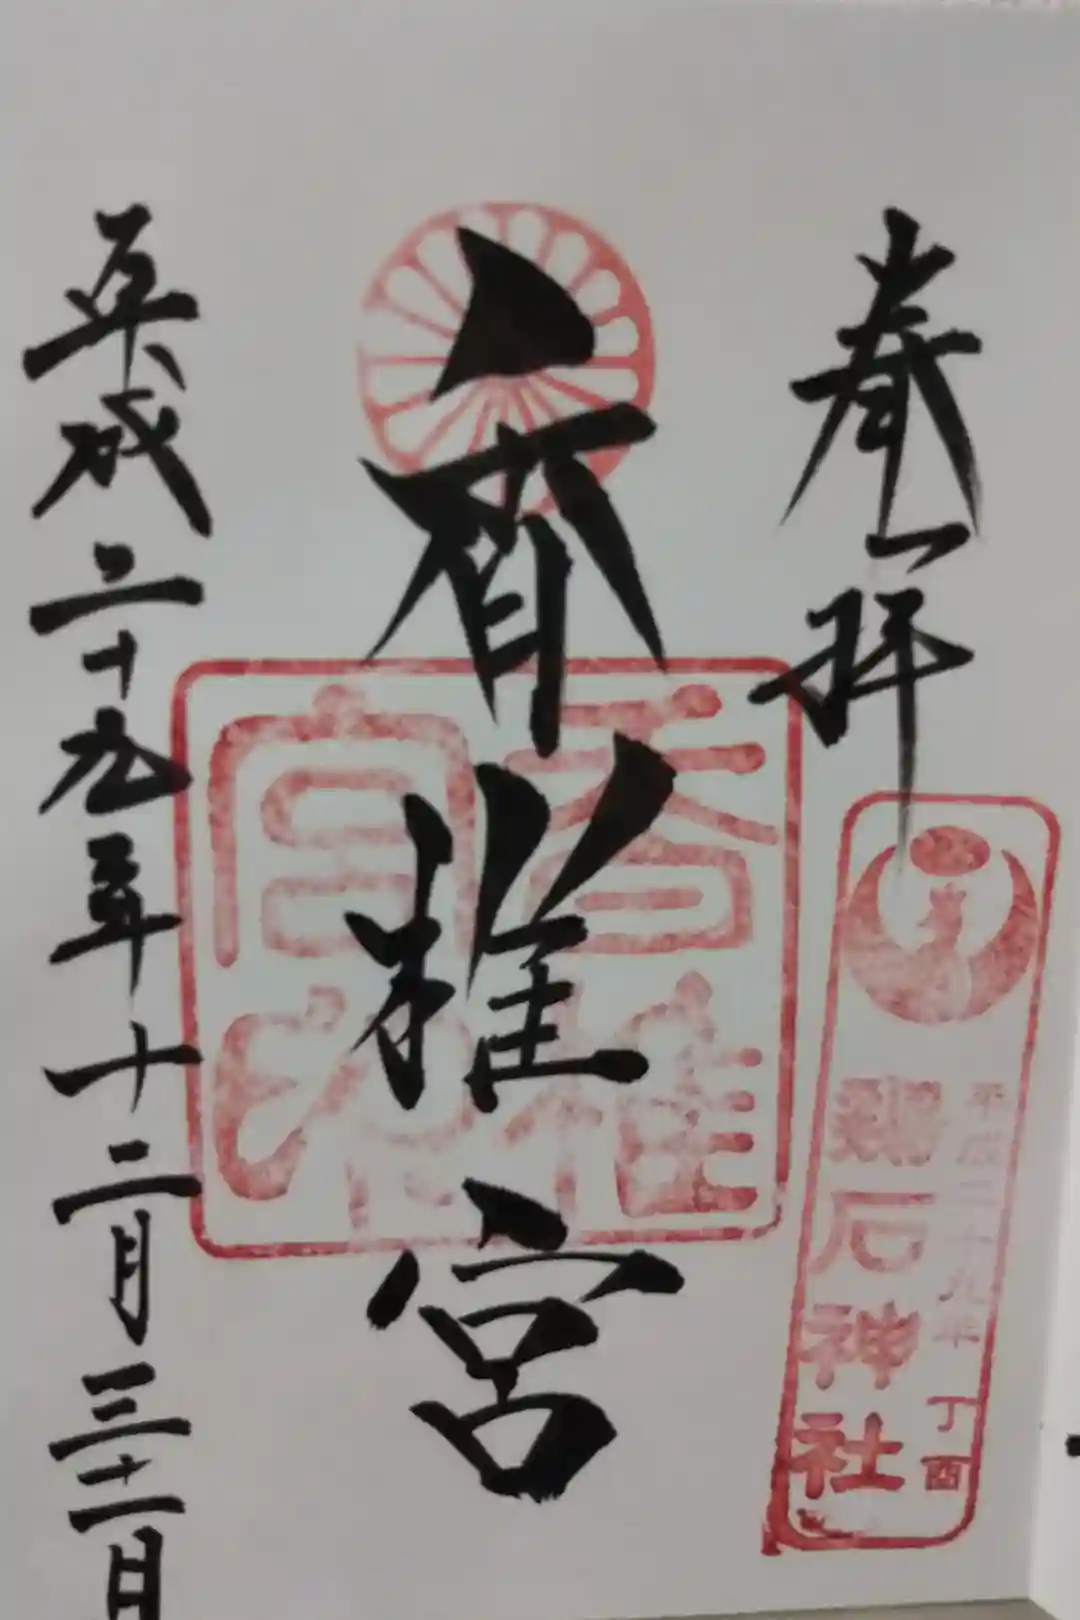 奉拝
平成二十九年 丁酉
鶏石神社
香椎宮
香椎
宮印
平成二十九年十二月三十一日